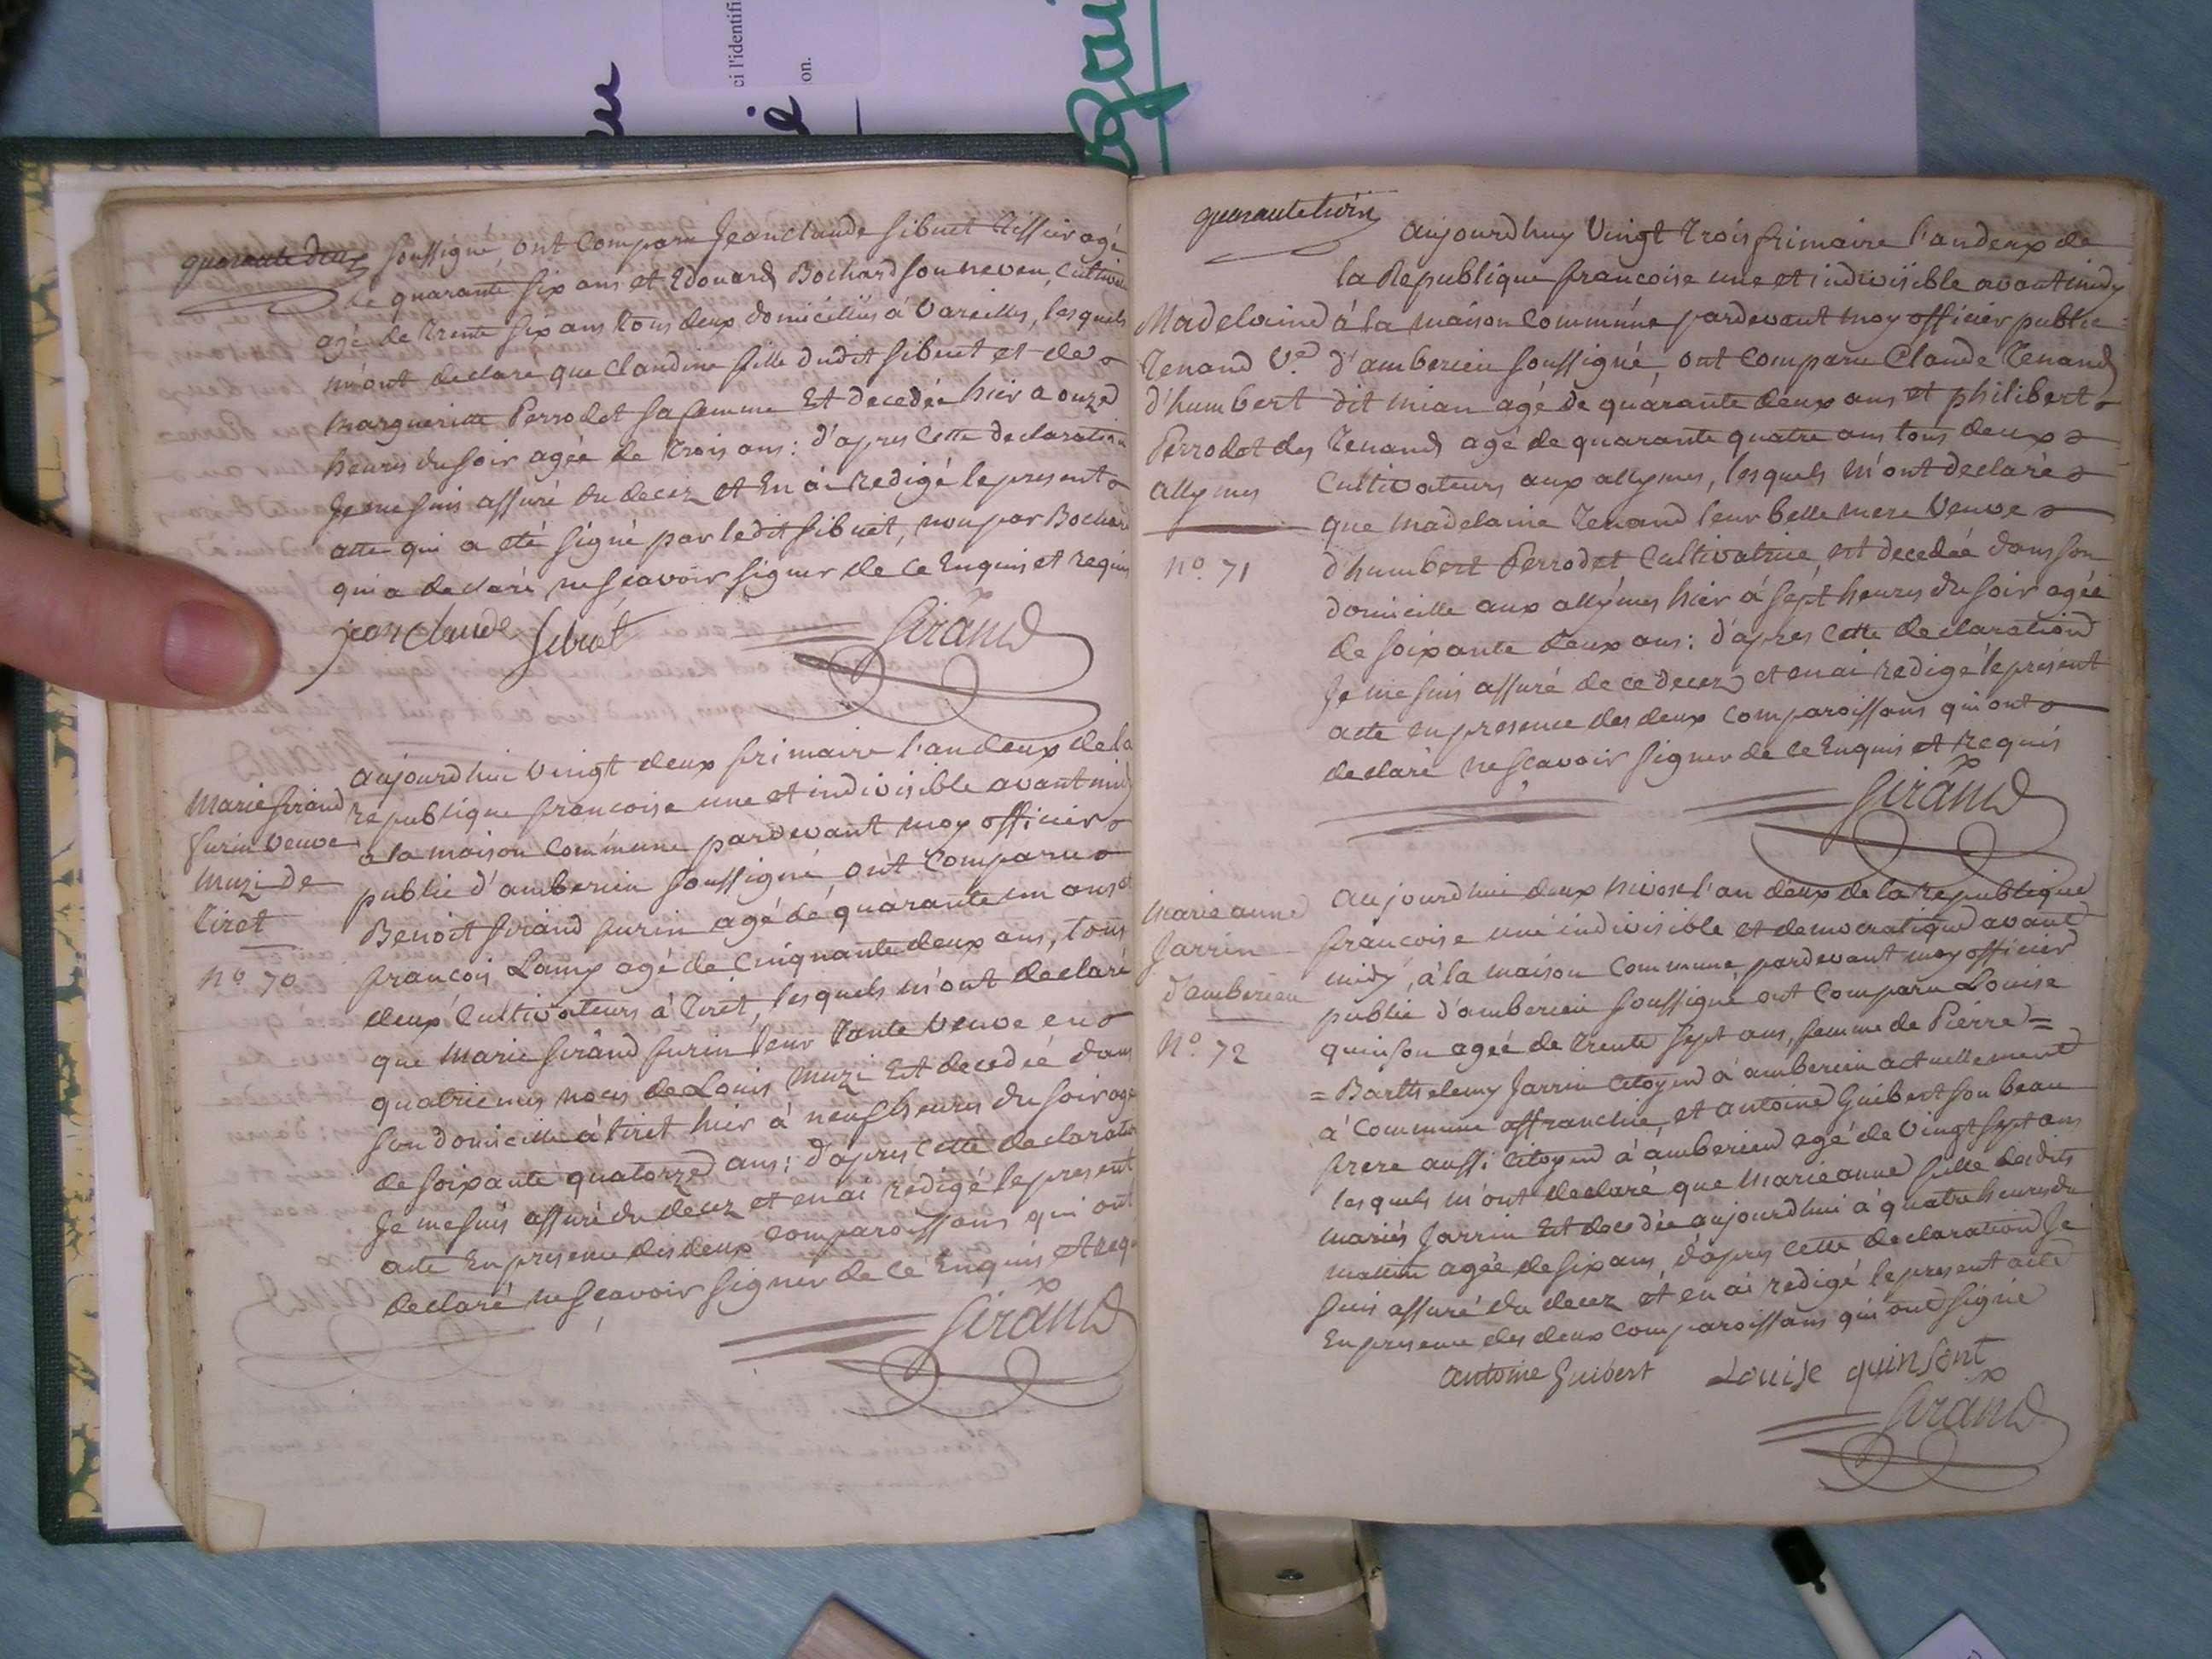 ci l'identifi
on.
quarante deux
soussigné, ont comparu Jean claude Sibuet tissier agé
de quarante six ans et Edouard Bochard son neveu, cultivateur
agé de trente six ans tous deux domicilliés à Vareilles, lesquels
m'ont declaré que claudine fille dudit Sibuet et de
margueritte Perrodet sa femme Est decedée hier a onze
heures du soir agée de trois ans: d'apres cette declaration
Je me suis assuré du decez et En ai redigé le present
acte qui a eté signé par ledit Sibuet, non par Bochard
qui a declaré ne sçavoir signer de ce Enquis et requis
jean claude Sibuet
Giraud
Marie Girand
Gurin veuve
Muzi de
tiret
No. 70
aujourdhui vingt deux frimaire l'an deux de la
republique francoise une et indivisible avant midy
a la maison commune pardevant moy officier
public d'amberieu soussigné, ont comparu
Benoit Girand Gurin agé de quarante un ans et
francois Lamy agé de cinquante deux ans, tous
deux Cultivateurs à Tiret, lesquels m'ont declaré
que Marie Girand Gurin leur tante veuve en
quatriemes noces de Louis Muzi Est decedée dans
son domicille à tiret hier à neuf heures du soir agée
de soixante quatorze ans: d'apres cette declaration
Je me suis assuré du decez et en ai redigé le present
acte En presence des deux comparoissans qui ont
declaré ne sçavoir signer de ce Enquis et requis
Girand
quarante trois
aujourdhuy Vingt trois frimaire l'an deux de
la Republique francoise une et indivisible avant midy
à la maison commune pardevant moy officier public
d'amberieu soussigné, ont comparu Claude Tenand
dit mian agé de quarante deux ans et philibert
Tenand agé de quarante quatre ans tous deux
Cultivateurs aux allymes, lesquels m'ont declaré
que Madelaine Tenand leur belle mere veuve
d'humbert Perrodet Cultivatrice, est decedée dans son
domicille aux allymes hier à sept heures du soir agée
de soixante deux ans: d'apres cette declaration
Je me suis assuré de ce decez et en ai redigé le present
acte en presence des deux comparoissans qui ont
declaré ne sçavoir signer de ce Enquis et requis
Girand
Madelaine
Tenand Ve.
d'humbert
Perrodet des
allymes
No. 71
Marie anne
Jarrin
d'amberieu
No. 72
aujourdhui deux nivose l'an deux de la republique
francoise une indivisible et democratique avant
midy, à la maison commune, pardevant moy officier
public d'amberieu soussigné ont comparu Louise
quinson agée de trente sept ans, femme de Pierre =
= Barthelemy Jarrin Citoyen à amberieu actuellement
à Commune affranchie, et antoine Guibert son beau
frere aussi Citoyen à amberieu agé de vingt sept ans
lesquels m'ont declaré que Marie anne fille desdits
mariés Jarrin Est decedée aujourdhui à quatre heures du
matin agée de six ans, d'apres cette declaration Je
suis assuré du decez et en ai redigé le present acte
En presence des deux comparoissans qui ont signé
antoine Guibert Louise quinsont
Girand